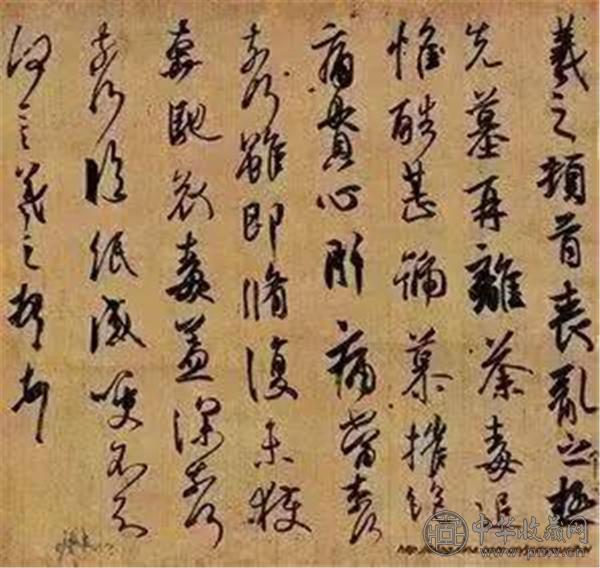 羲之頓首喪亂之極
先墓再離荼毒追
惟酷甚號慕摧絕
痛貫心肝痛當奈何
奈何雖即脩復未獲
奔馳哀毒益深奈何
奈何臨紙感哽不知
何言羲之頓首頓首
中华收藏网